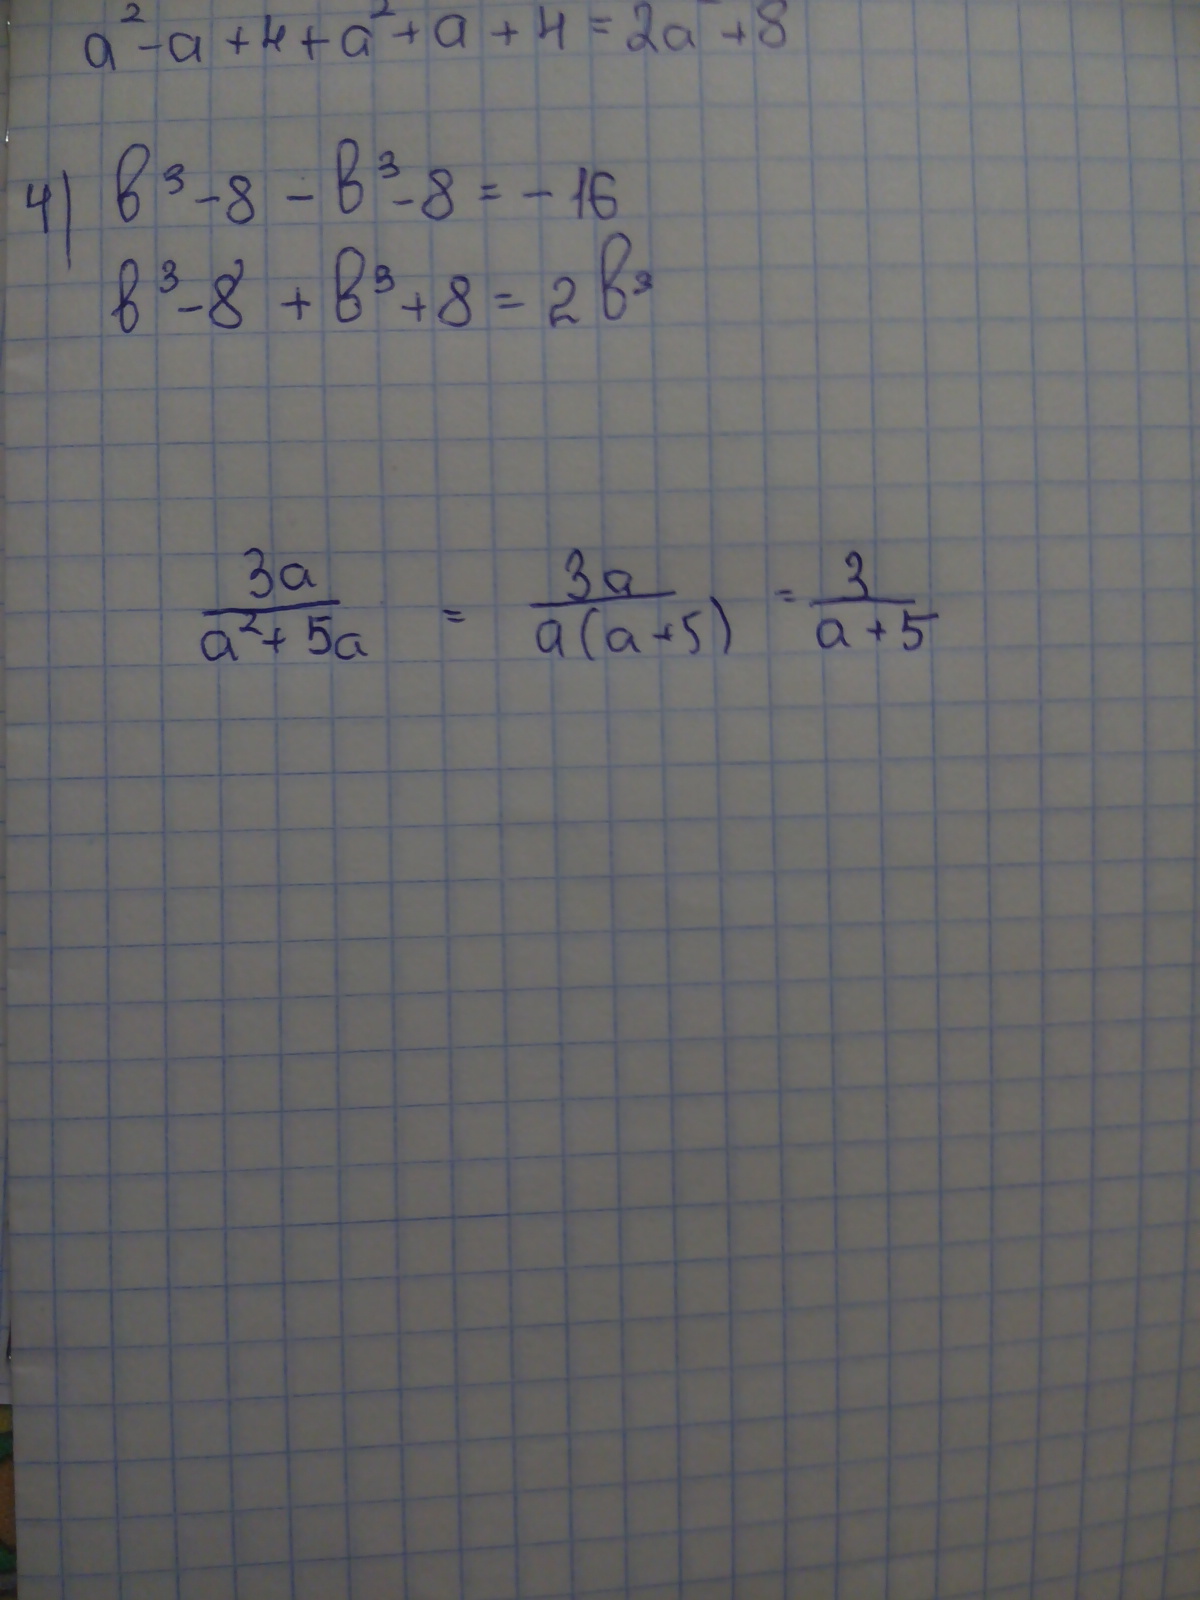 a² - a + 4 + a² + a + 4 = 2a² + 8
4) в³ - 8 - в³ - 8 = - 16
в³ - 8 + в³ + 8 = 2в³
3a/(a² + 5a) = 3a/(a(a + 5)) = 3/(a + 5)